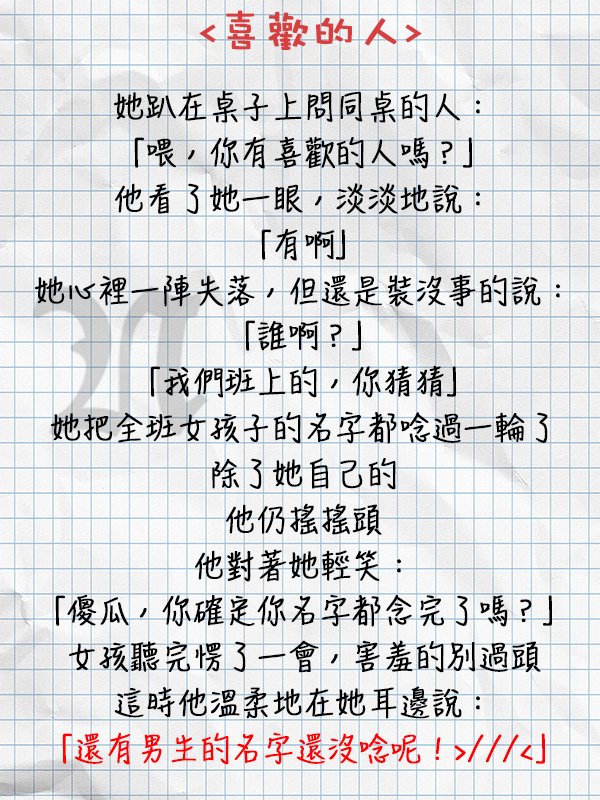 <喜歡的人>
她趴在桌子上問同桌的人：
「喂，你有喜歡的人嗎？」
他看了她一眼，淡淡地說：
「有啊」
她心裡一陣失落，但還是裝沒事的說：
「誰啊？」
「我們班上的，你猜猜」
她把全班女孩子的名字都唸過一輪了
除了她自己的
他仍搖搖頭
他對著她輕笑：
「傻瓜，你確定你名字都念完了嗎？」
女孩聽完愣了一會，害羞的別過頭
這時他溫柔地在她耳邊說：
「還有男生的名字還沒唸呢！>///<」